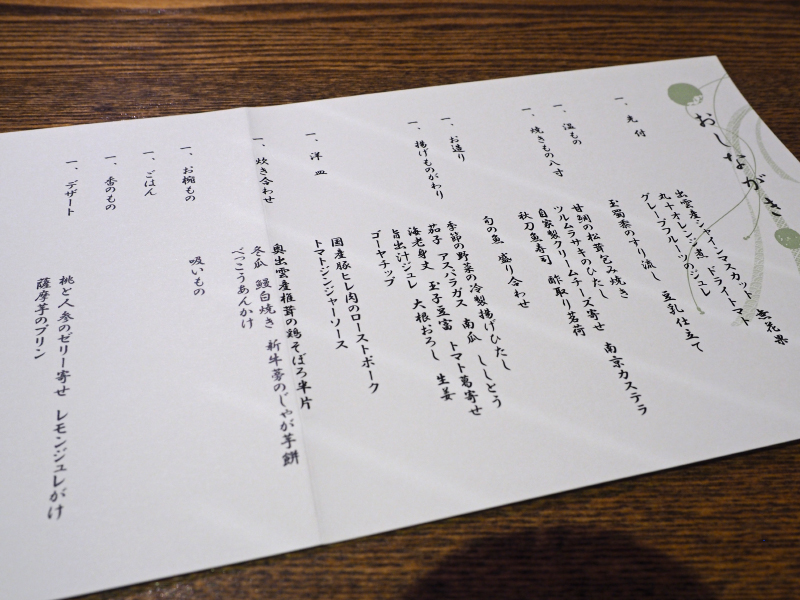 おしながき
一、先付
出雲産シャインマスカット 無花果
丸十オレンジ煮 ドライトマト
グレープフルーツのジュレ
一、温もの
玉蜀黍のすり流し 豆乳仕立て
一、焼きもの八寸
甘鯛の松茸包み焼き
ツルムラサキのひたし
自家製クリームチーズ寄せ 南京カステラ
秋刀魚寿司 酢取り茗荷
一、お造り
旬の魚 盛り合わせ
一、揚げものがわり
季節の野菜の冷製揚げひたし
茄子 アスパラガス 南瓜 ししとう
海老身丈 玉子豆富 トマト葛寄せ
旨出汁ジュレ 大根おろし 生姜
ゴーヤチップ
一、洋皿
国産豚ヒレ肉のローストポーク
トマトジンジャーソース
一、炊き合わせ
奥出雲産椎茸の鶏そぼろ半片
冬瓜 鰻白焼き 新牛蒡のじゃが芋餅
べっこうあんかけ
一、お椀もの
吸いもの
一、ごはん
一、香のもの
一、デザート
桃と人参のゼリー寄せ レモンジュレがけ
薩摩芋のプリン